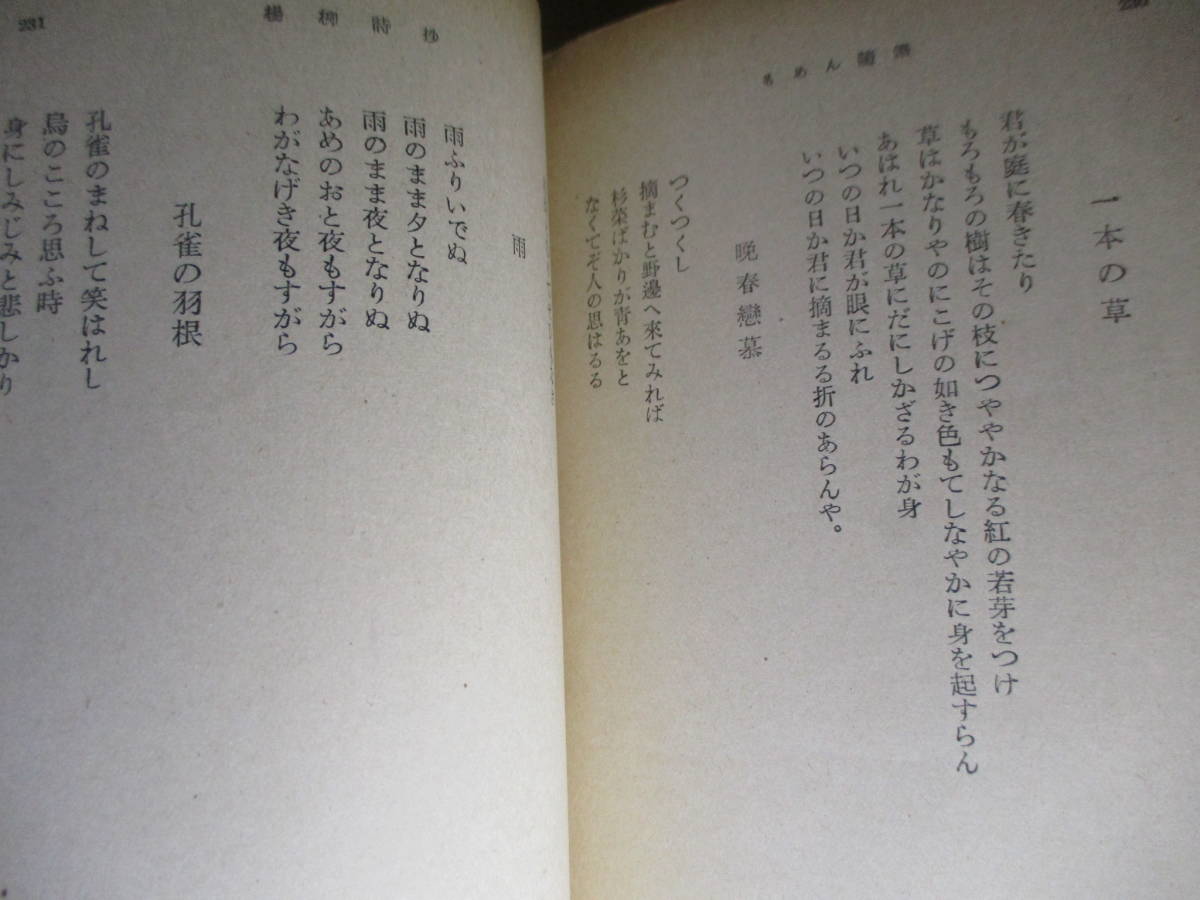 もめん隨筆
一本の草
君が庭に春きたり
もろもろの樹はその枝につややかなる紅の若芽をつけ
草はかなりやのにこげの如き色もてしなやかに身を起すらん
あはれ一本の草にだにしかざるわが身
いつの日か君が眼にふれ
いつの日か君に摘まるる折のあらんや。
晩春戀慕
つくつくし
摘まむと野邊へ來てみれば
杉菜ばかりが青あをと
なくてぞ人の思はるる
231
楊柳詩抄
雨
雨ふりいでぬ
雨のまま夕となりぬ
雨のまま夜となりぬ
あめのおと夜もすがら
わがなげき夜もすがら
孔雀の羽根
孔雀のまねして笑はれし
鳥のこころ思ふ時
身にしみじみと悲しかり